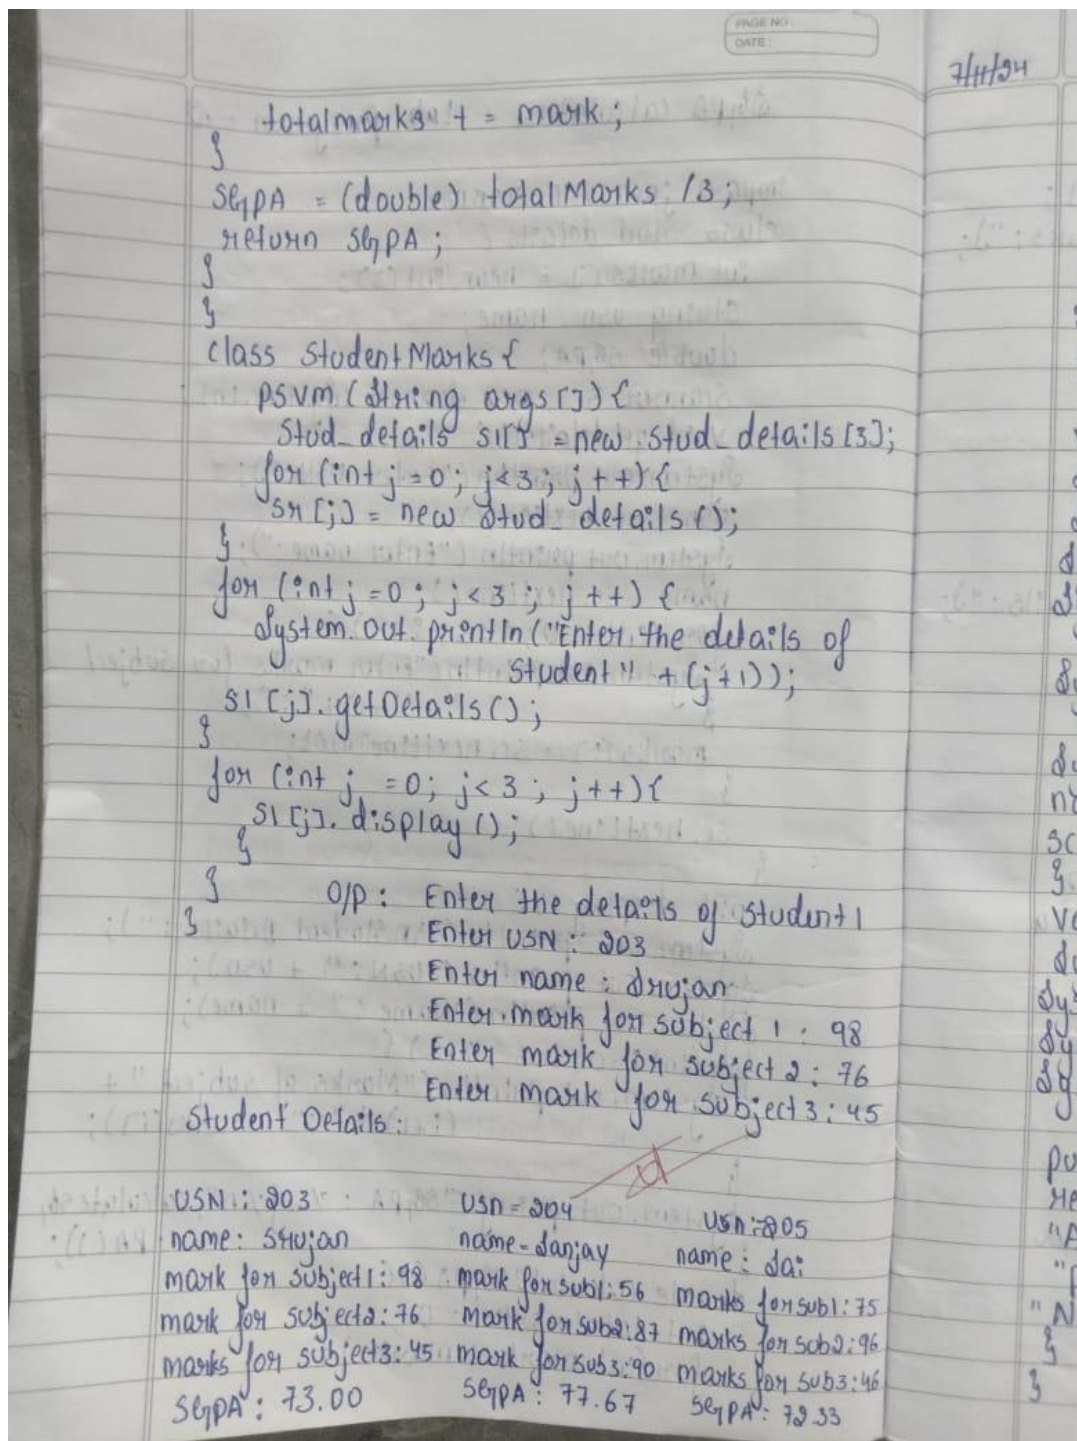 PAGE NO:
DATE:
7/11/24
totalmarks + = mark;
}
SGPA = (double) totalMarks /3;
return SGPA;
}
}
class StudentMarks {
psvm (String args[]) {
Stud_details s1[] = new Stud_details [3];
for (int j = 0; j < 3; j++) {
sr [j] = new Stud_details ();
}
for (int j = 0; j < 3; j++) {
System.out.println ("Enter the details of
Student" + (j+1));
s1 [j]. getDetails ();
}
for (int j = 0; j < 3; j++) {
s1 [j]. display ();
}
}
O/P: Enter the details of Student 1
}
Enter USN: 203
Enter name: Srujan
Enter mark for subject 1: 98
Enter mark for subject 2: 76
Enter mark for subject 3: 45
Student Details:
USN: 203 USN = 204 USN: 205
name: Srujan name - Sanjay name: Sai
mark for subject1: 98 mark for sub1: 56 marks for sub1: 75
mark for subject2: 76 mark for sub2: 87 marks for sub2: 96
marks for subject3: 45 mark for sub3: 90 marks for sub3: 46
SGPA: 73.00 SGPA: 77.67 SGPA: 72.33